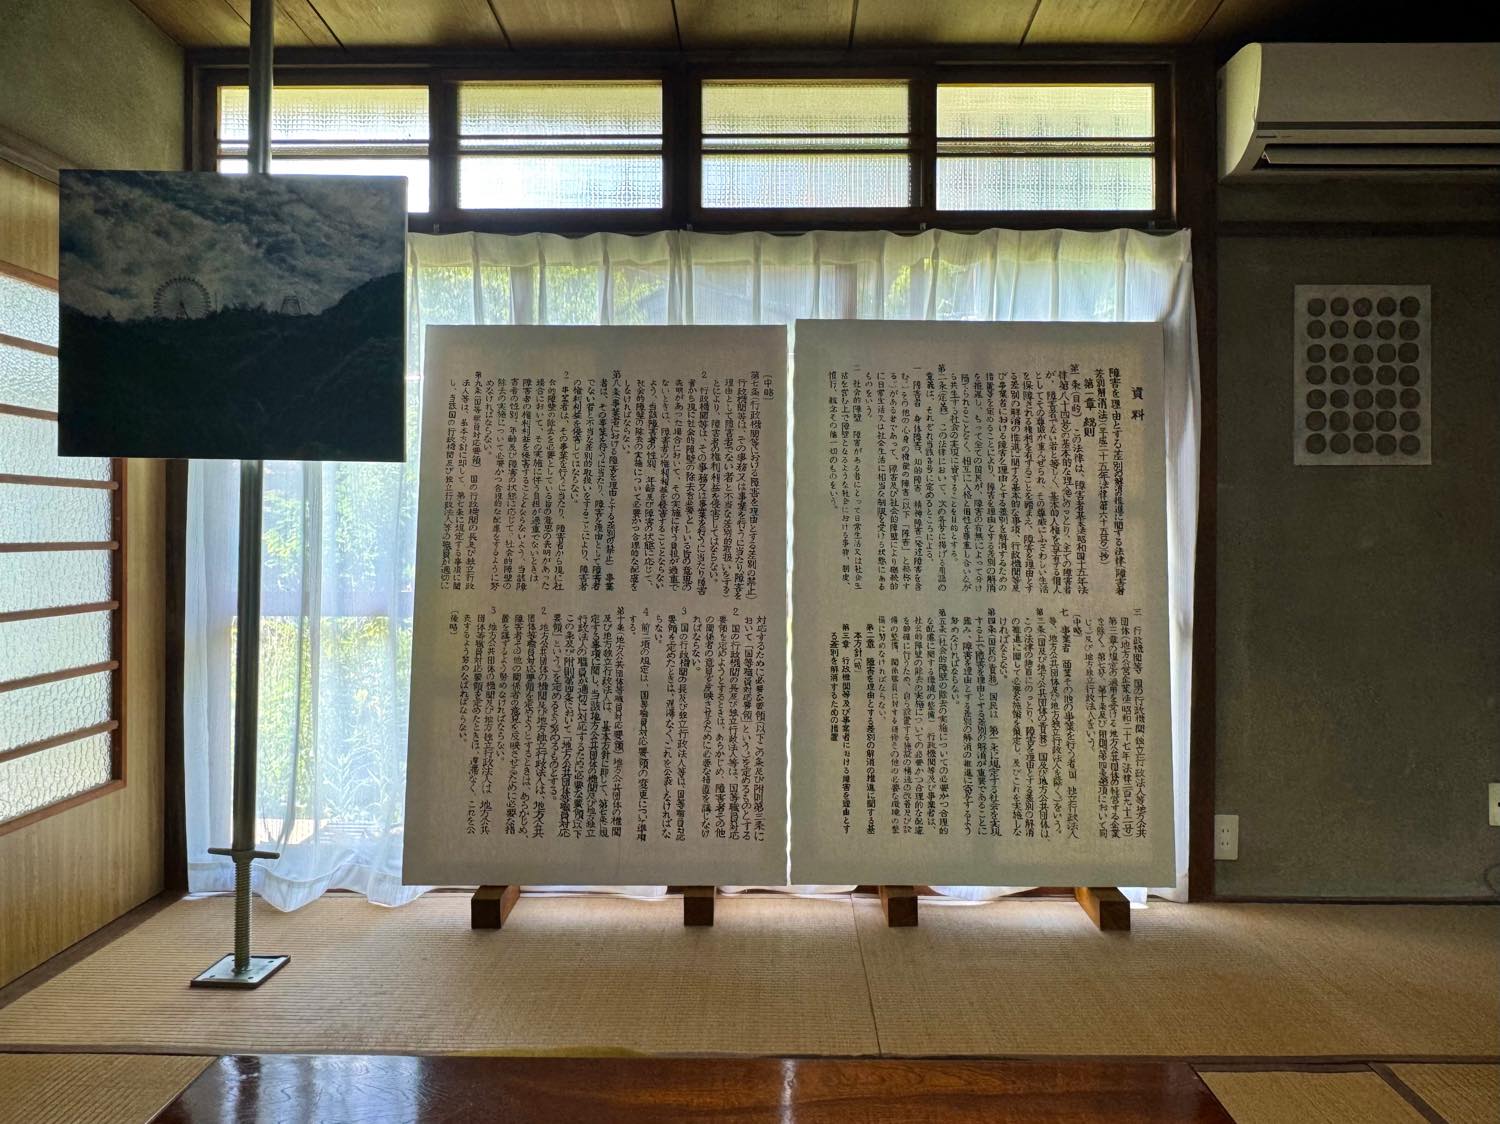 資料
障害を理由とする差別の解消の推進に関する法律（障害者
差別解消法）（平成二十五年法律第六十五号）（抄）
第一章 総則
第一条（目的） この法律は、障害者基本法（昭和四十五年法
律第八十四号）の基本的な理念にのっとり、全ての障害者
が、障害者でない者と等しく、基本的人権を享有する個人
としてその尊厳が重んぜられ、その尊厳にふさわしい生活
を保障される権利を有することを踏まえ、障害を理由とす
る差別の解消の推進に関する基本的な事項、行政機関等及
び事業者における障害を理由とする差別を解消するための
措置等を定めることにより、障害を理由とする差別の解消
を推進し、もって全ての国民が、障害の有無によって分け
隔てられることなく、相互に人格と個性を尊重し合いなが
ら共生する社会の実現に資することを目的とする。
第二条（定義） この法律において、次の各号に掲げる用語の
意義は、それぞれ当該各号に定めるところによる。
一 障害者 身体障害、知的障害、精神障害（発達障害を含
む。）その他の心身の機能の障害（以下「障害」と総称す
る。）がある者であって、障害及び社会的障壁により継続的
に日常生活又は社会生活に相当な制限を受ける状態にある
ものをいう。
二 社会的障壁 障害がある者にとって日常生活又は社会生
活を営む上で障壁となるような社会における事物、制度、
慣行、観念その他一切のものをいう。
三 行政機関等 国の行政機関、独立行政法人等、地方公共
団体（地方公営企業法（昭和二十七年法律第二百九十二号）
第三章の規定の適用を受ける地方公共団体の経営する企業
を除く。第七、第十条及び附則第四条第一項において同
じ。）及び地方独立行政法人をいう。
（中略）
七 事業者 商業その他の事業を行う者（国、独立行政法人
等、地方公共団体及び地方独立行政法人を除く。）をいう。
第三条（国及び地方公共団体の責務） 国及び地方公共団体は、
この法律の趣旨にのっとり、障害を理由とする差別の解消
の推進に関して必要な施策を策定し、及びこれを実施しな
ければならない。
第四条（国民の責務） 国民は、第一条に規定する社会を実現
する上で障害を理由とする差別の解消が重要であることに
鑑み、障害を理由とする差別の解消の推進に寄与するよう
努めなければならない。
第五条（社会的障壁の除去の実施についての必要かつ合理的
な配慮に関する環境の整備） 行政機関等及び事業者は、
社会的障壁の除去の実施についての必要かつ合理的な配慮
を的確に行うため、自ら設置する施設の構造の改善及び設
備の整備、関係職員に対する研修その他の必要な環境の整
備に努めなければならない。
第二章 障害を理由とする差別の解消の推進に関する基
本方針（略）
第三章 行政機関等及び事業者における障害を理由とす
る差別を解消するための措置
（中略）
第七条（行政機関等における障害を理由とする差別の禁止）
行政機関等は、その事務又は事業を行うに当たり、障害を
理由として障害者でない者と不当な差別的取扱いをするこ
とにより、障害者の権利利益を侵害してはならない。
2 行政機関等は、その事務又は事業を行うに当たり、障害
者から現に社会的障壁の除去を必要としている旨の意思の
表明があった場合において、その実施に伴う負担が過重で
ないときは、障害者の権利利益を侵害することとならない
よう、当該障害者の性別、年齢及び障害の状態に応じて、
社会的障壁の除去の実施について必要かつ合理的な配慮を
しなければならない。
第八条（事業者における障害を理由とする差別の禁止） 事業
者は、その事業を行うに当たり、障害を理由として障害者
でない者と不当な差別的取扱いをすることにより、障害者
の権利利益を侵害してはならない。
2 事業者は、その事業を行うに当たり、障害者から現に社
会的障壁の除去を必要としている旨の意思の表明があった
場合において、その実施に伴う負担が過重でないときは、
障害者の権利利益を侵害することとならないよう、当該障
害者の性別、年齢及び障害の状態に応じて、社会的障壁の
除去の実施について必要かつ合理的な配慮をするように努
めなければならない。
第九条（国等職員対応要領） 国の行政機関の長及び独立行政
法人等は、基本方針に即して、第七条に規定する事項に関
し、当該国の行政機関及び独立行政法人等の職員が適切に
対応するために必要な要領（以下この条及び附則第三条に
おいて「国等職員対応要領」という。）を定めるものとする。
2 国の行政機関の長及び独立行政法人等は、国等職員対応
要領を定めようとするときは、あらかじめ、障害者その他
の関係者の意見を反映させるために必要な措置を講じなけ
ればならない。
3 国の行政機関の長及び独立行政法人等は、国等職員対応
要領を定めたときは、遅滞なく、これを公表しなければな
らない。
4 前二項の規定は、国等職員対応要領の変更について準用
する。
第十条（地方公共団体等職員対応要領） 地方公共団体の機関
及び地方独立行政法人は、基本方針に即して、第七条に規
定する事項に関し、当該地方公共団体の機関及び地方独立
行政法人の職員が適切に対応するために必要な要領（以下
この条及び附則第四条において「地方公共団体等職員対応
要領」という。）を定めるよう努めるものとする。
2 地方公共団体の機関及び地方独立行政法人は、地方公共
団体等職員対応要領を定めようとするときは、あらかじめ、
障害者その他の関係者の意見を反映させるために必要な措
置を講ずるよう努めなければならない。
3 地方公共団体の機関及び地方独立行政法人は、地方公共
団体等職員対応要領を定めたときは、遅滞なく、これを公
表するよう努めなければならない。
（後略）